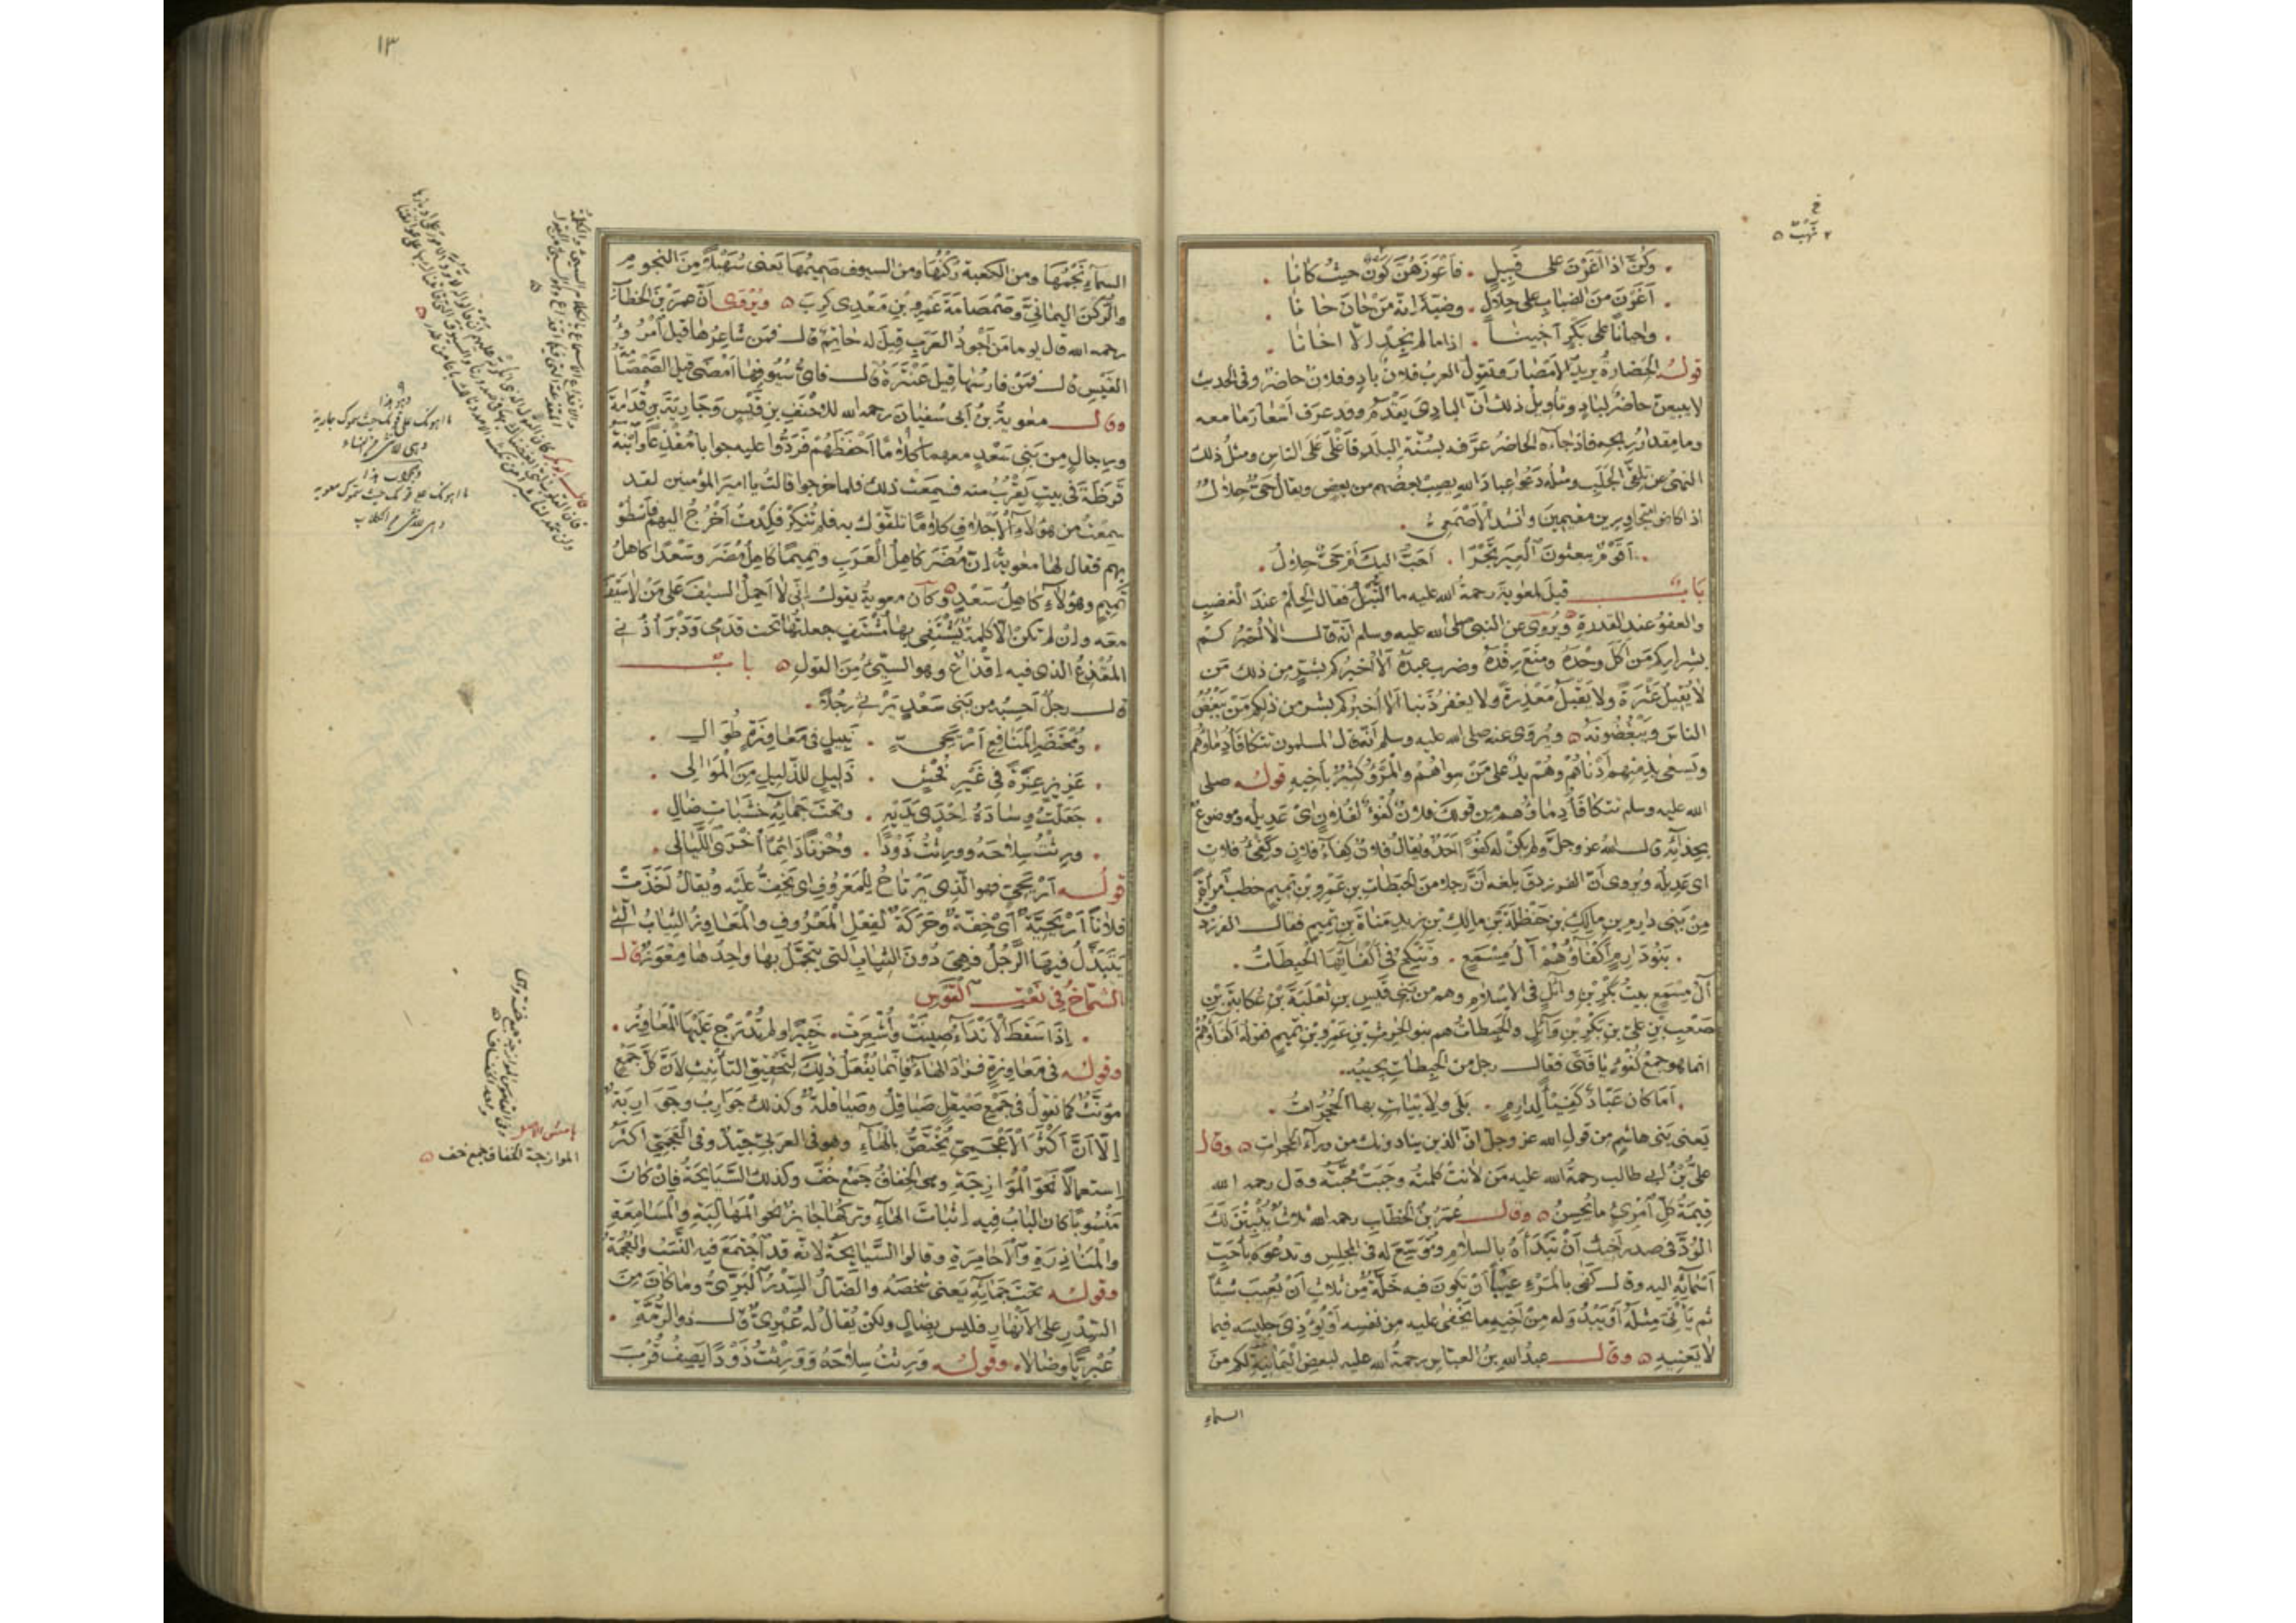 وكنّ اذا اغرن على قبيل . فاعوزهن كون حيث كانا
اغرن من الضباب على حلال . وضبّة انه من حان حانا
واحيانا على بكر اخينا . اذا ما لم نجد الا اخانا
قوله الحضارة يريد الامصار وتقول العرب فلان باد وفلان حاضر وفى الحديث
لا يبيعن حاضر لباد وتأويل ذلك ان البادى يقدم وقد عرف اسعار ما معه
وما مقدار ربحه فاذا جاءه الحاضر عرّفه بسنّة البلد فاغلى على الناس ومثل ذلك
النهى عن تلقى الجلب ومثله دعوا عباد الله يصب بعضهم من بعض ويقال حىّ حلال
اذا كانوا متجاورين مقيمين وانشد الاصمعى
اقوم يبعثون العير تجرا . احب اليك ام حىّ حلال
باب قيل لمعوية رحمة الله عليه ما النبل فقال الحلم عند الغضب
والعفو عند القدرة ويروى عن النبى صلى الله عليه وسلم انه قال الا اخبركم
بشراركم من اكل وحده ومنع رفده وضرب عبده الا اخبركم بشرّ من ذلك من
لا يقيل عثرة ولا يقبل معذرة ولا يغفر ذنبا الا اخبركم بشر من ذلكم من يبغض
الناس ويبغضونه ويروى عنه صلى الله عليه وسلم انه قال المسلمون تتكافأ دماؤهم
ويسعى بذمتهم ادناهم وهم يد على من سواهم والمرء كثير بأخيه قوله صلى
الله عليه وسلم تتكافأ دماؤهم من قولك فلان كفؤ لفلان اى عديله وموضوع
بحذائه قال الله عز وجل ولم يكن له كفوا احد ويقال فلان كفاء فلان وكفئ فلان
اى عديله ويروى ان الفرزدق بلغه ان رجلا من الحبطات بن عمرو بن تميم خطب امرأة
من بنى دارم بن مالك بن حنظلة بن مالك بن زيد مناة بن تميم فقال الفرزدق
بنو دارم اكفاؤهم آل مسمع . وتنكح فى اكفائها الحبطات
آل مسمع بيت بكر بن وائل فى الاسلام وهم من بنى قيس بن ثعلبة بن عكابة بن
صعب بن على بن بكر بن وائل والحبطات هم بنو الحرث بن عمرو بن تميم فقوله اكفاؤهم
انما هو جمع كفؤ يا فتى فقال رجل من الحبطات يجيبه
اما كان عبّاد كفيئا لدارم . بلى ولابيات بها الحجرات
يعنى بنى هاشم من قول الله عز وجل ان الذين ينادونك من وراء الحجرات وقال
علىّ بن ابى طالب رحمة الله عليه من لانت كلمته وجبت محبته وقال رحمه الله
قيمة كل امرئ ما يحسن وقال عمر بن الخطاب رحمه الله ثلاث يثبتن لك
الودّ فى صدر اخيك ان تبدأه بالسلام وتوسّع له فى المجلس وتدعوه بأحب
اسمائه اليه وقال كفى بالمرء عيبا ان تكون فيه خلّة من ثلاث ان يعيب شيئا
ثم يأتى مثله او يبدو له من اخيه ما يخفى عليه من نفسه او يؤذى جليسه فيما
لا يعنيه وقال عبد الله بن العباس رحمة الله عليه لبعض اليمانية لكم من
السماء
١٣
السماء نجمها ومن الكعبة ركنها ومن السيوف صميمها يعنى سهيلا من النجوم
والركن اليمانىّ وصمصامة عمرو بن معدى كرب ويروى ان عمر بن الخطاب
رحمه الله قال يوما من اجود العرب قيل له حاتم قال فمن شاعرها قيل امرؤ
القيس قال فمن فارسها قيل عنترة قال فاىّ سيوفها امضى قيل الصمصامة
وقال معوية بن ابى سفيان رحمه الله للاحنف بن قيس وجارية بن قدامة
ورجال من بنى سعد معهما كلاما احفظهم فردّوا عليه جوابا مقذعا وابنة
قرظة فى بيت يقرب منه فسمعت ذلك فلما خرجوا قالت يا امير المؤمنين لقد
سمعت من هؤلاء الاجلاف كلاما تلقّوك به فلم تنكر فكدت اخرج اليهم فاسطو
بهم فقال لها معوية ان مضر كاهل العرب وتميما كاهل مضر وسعدا كاهل
تميم وهؤلاء كاهل سعد وكان معوية يقول انى لا احمل السيف على من لا سيف
معه وان لم تكن الا كلمة يشتفى بها مشتف جعلتها تحت قدمى ودبر اذنى
المقذع الذى فيه اقذاع وهو السيئ من القول باب
قال رجل احسبه من بنى سعد يرثى رجلا
ومحتضر المنافع اريحىّ . نبيل فى معاوزة طوال
عزيز عزّة فى غير فحش . ذليل للذليل من الموالى
جعلت وسادة احدى يديه . وتحت جمائه خشبات ضال
ورثت سلاحه وورثت ذودا . وحزنا دائما اخرى الليالى
قوله اريحىّ فهو الذى يرتاح للمعروف اى يخف عليه ويقال اخذت
فلانا اريحية اى خفة وحركة لفعل المعروف والمعاوز الثياب التى
يتبذّل فيها الرجل فهى دون الثياب التى يتجمل بها واحدها معوز قال
الشماخ فى نعت القوس
اذا سقط الانداء صينت واشعرت . حبيرا ولم تدرج عليها المعاوز
وقوله فى معاوزة فزاد الهاء فانما يفعل ذلك لتحقيق التأنيث لان كل جمع
مؤنث كما تقول فى جمع صيقل صياقل وصياقلة وكذلك جوارب وجواربة
الا ان اكثر الاعجمى يختص بالهاء وهو فى العربى جيد وفى العجمى اكثر
استعمالا نحو الموازجة وهى الخفاف جمع خف وكذلك السيابجة فان كان
منسوبا كان الباب فيه اثبات الهاء وتركها جائز نحو المهالبة والمسامعة
والمناذرة والاحامرة وقالوا السيابجة لانه قد اجتمع فيه النسب والعجمة
وقوله تحت جمائه يعنى شخصه والضال السدر البرىّ وما كان من
السدر على الانهار فليس بضال ولكن يقال له عبرىّ قال ذو الرمة
عبريا وضالا وقوله ورثت سلاحه وورثت ذودا يصف قرب
الموازجة الخفاف جمع خف